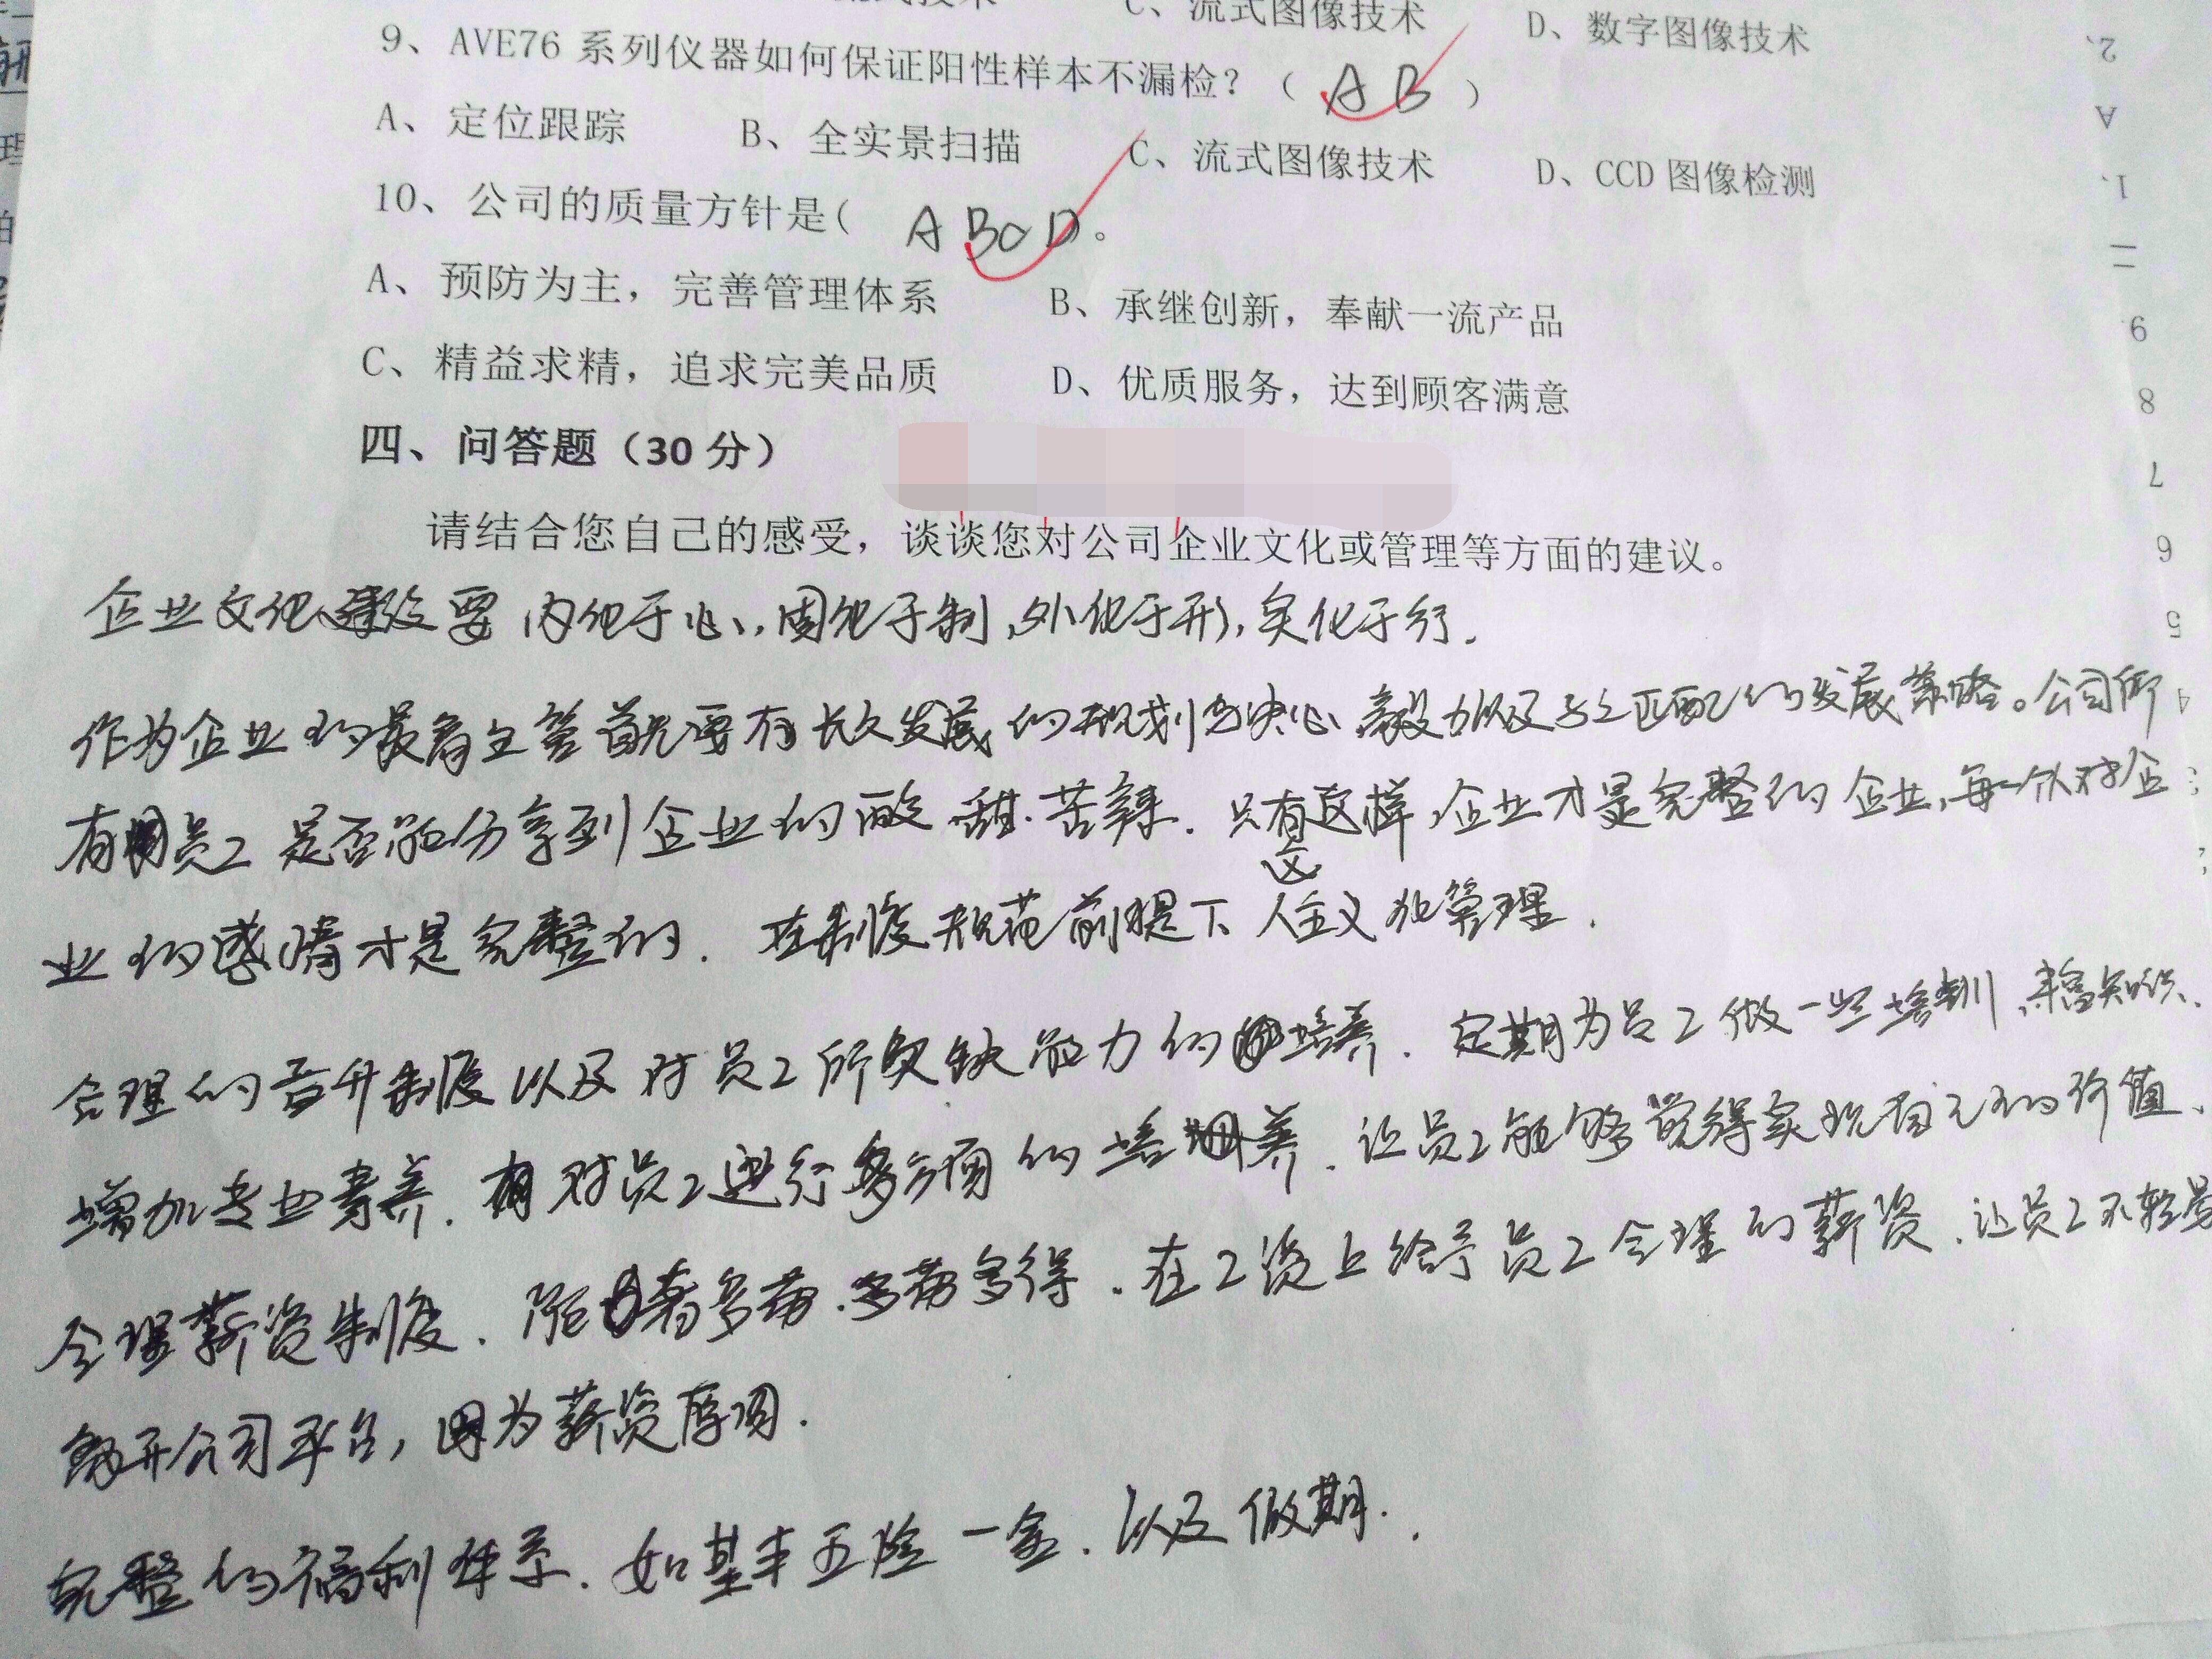 C、流式图像技术 D、数字图像技术
9、AVE76系列仪器如何保证阳性样本不漏检？（ AB ）
A、定位跟踪 B、全实景扫描 C、流式图像技术 D、CCD图像检测
10、公司的质量方针是( ABCD)。
A、预防为主，完善管理体系 B、承继创新，奉献一流产品
C、精益求精，追求完美品质 D、优质服务，达到顾客满意
四、问答题（30分）
请结合您自己的感受，谈谈您对公司企业文化或管理等方面的建议。
企业文化建设要内化于心，固化于制，外化于形，实化于行.
作为企业的最高主管首先要有长久发展的规划与决心、毅力以及与之匹配的发展策略。公司所
有员工是否能分享到企业的酸.甜.苦辣.只有这样,企业才是完整的企业,每一个人对企
业的感情才是完整的.在制度规范前提下人主义化管理.
合理的晋升制度以及对员工所欠缺能力的培养.定期为员工做一些培训,丰富知识、
增加专业素养.对员工进行多方面的培养.让员工能够觉得实现自己的价值、
合理薪资制度.能者多劳.多劳多得.在工资上给予员工合理的薪资.让员工不轻易
离开公司平台,因为薪资原因.
完整的福利体系.如基本五险一金.以及假期.
2、
A
1、
二
9
8
7
6
5